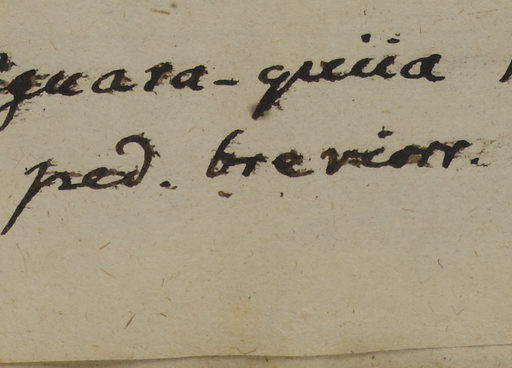 guara-quiia
ped. brevior.